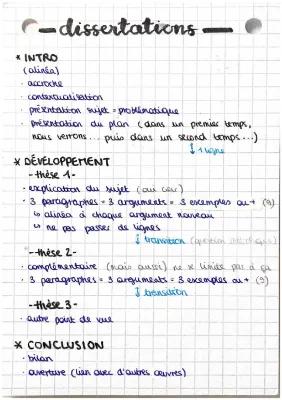 dissertations
* INTRO
(alinéa)
· accroche
· contextualisation
· présentation sujet = problématique
· présentation du plan (dans un premier temps,
nous verrons... puis dans un second temps...)
↓ 1 ligne
* DÉVELOPPEMENT
- thèse 1 -
· explication du sujet (oui car)
· 3 paragraphes = 3 arguments = 3 exemples au + (9)
↳ alinéa à chaque argument nouveau
↳ ne pas passer de lignes
↓ transition (question
- thèse 2 -
· complémentaire (mais aussi) ne se limite pas à ça
· 3 paragraphes = 3 arguments = 3 exemples au + (9)
↓ transition
- thèse 3 -
· autre point de vue
* CONCLUSION
· bilan
· ouverture (lien avec d'autres œuvres)